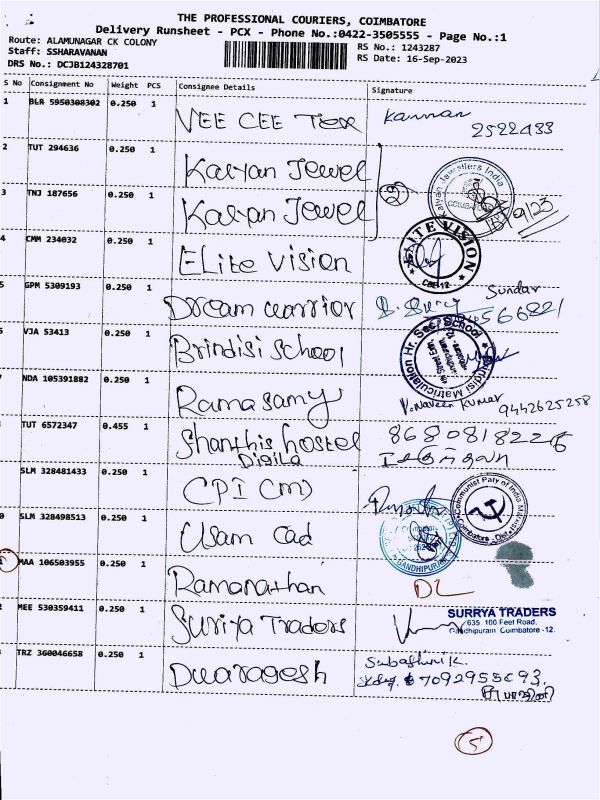 THE PROFESSIONAL COURIERS, COIMBATORE
Delivery Runsheet - PCX - Phone No.:0422-3505555 - Page No.:1
Route: ALAMUNAGAR CK COLONY
Staff: SSHARAVANAN
DRS No.: DCJB124328701
RS No.: 1243287
RS Date: 16-Sep-2023
S No Consignment No Weight PCS Consignee Details Signature
1 BLR 5950308302 0.250 1 VEE CEE Tex Kannan
2522433
2 TUT 294636 0.250 1 Kalyan Jewel
3 TNJ 187656 0.250 1 Kalyan Jewel
2
Kalyan Jewellers India
16/9/23
4 CMM 234032 0.250 1 ELite Vision
ELITE VISION
CBE-12
5 GPM 5309193 0.250 1 Dream warrior
Sundar
566821
VJA 53413 0.250 1 Brindisi School
Brindisi Matriculation Hr. Sec. School
NDA 105391882 0.250 1 Ramasamy
P. Naveen Kumar 9442625258
TUT 6572347 0.455 1 Shanthis hostel
Digila
SLM 328481433 0.250 1 CPI (M)
Communist Paty of India
Coimbatore - Dist
SLM 328498513 0.250 1 Usam Cad
GANDHIPURAM
MAA 106503955 0.250 1 Ramanathan DL
MEE 530359411 0.250 1 Suriya Traders
SURRYA TRADERS
635, 100 Feet Road,
Gandhipuram, Coimbatore -12.
TRZ 360046658 0.250 1 Dwaragesh
7092955693.
5